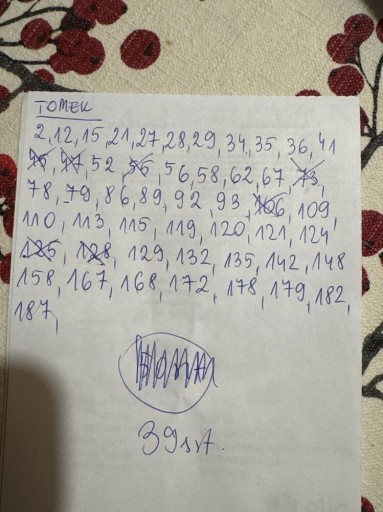 TOMEK
2, 12, 15, 21, 27, 28, 29, 34, 35, 36, 41
45, 47, 52, 56, 56, 58, 62, 67, 73,
78, 79, 86, 89, 92, 93, 106, 109,
110, 113, 115, 119, 120, 121, 124
125, 128, 129, 132, 135, 142, 148
158, 167, 168, 172, 178, 179, 182,
187,
39szt.